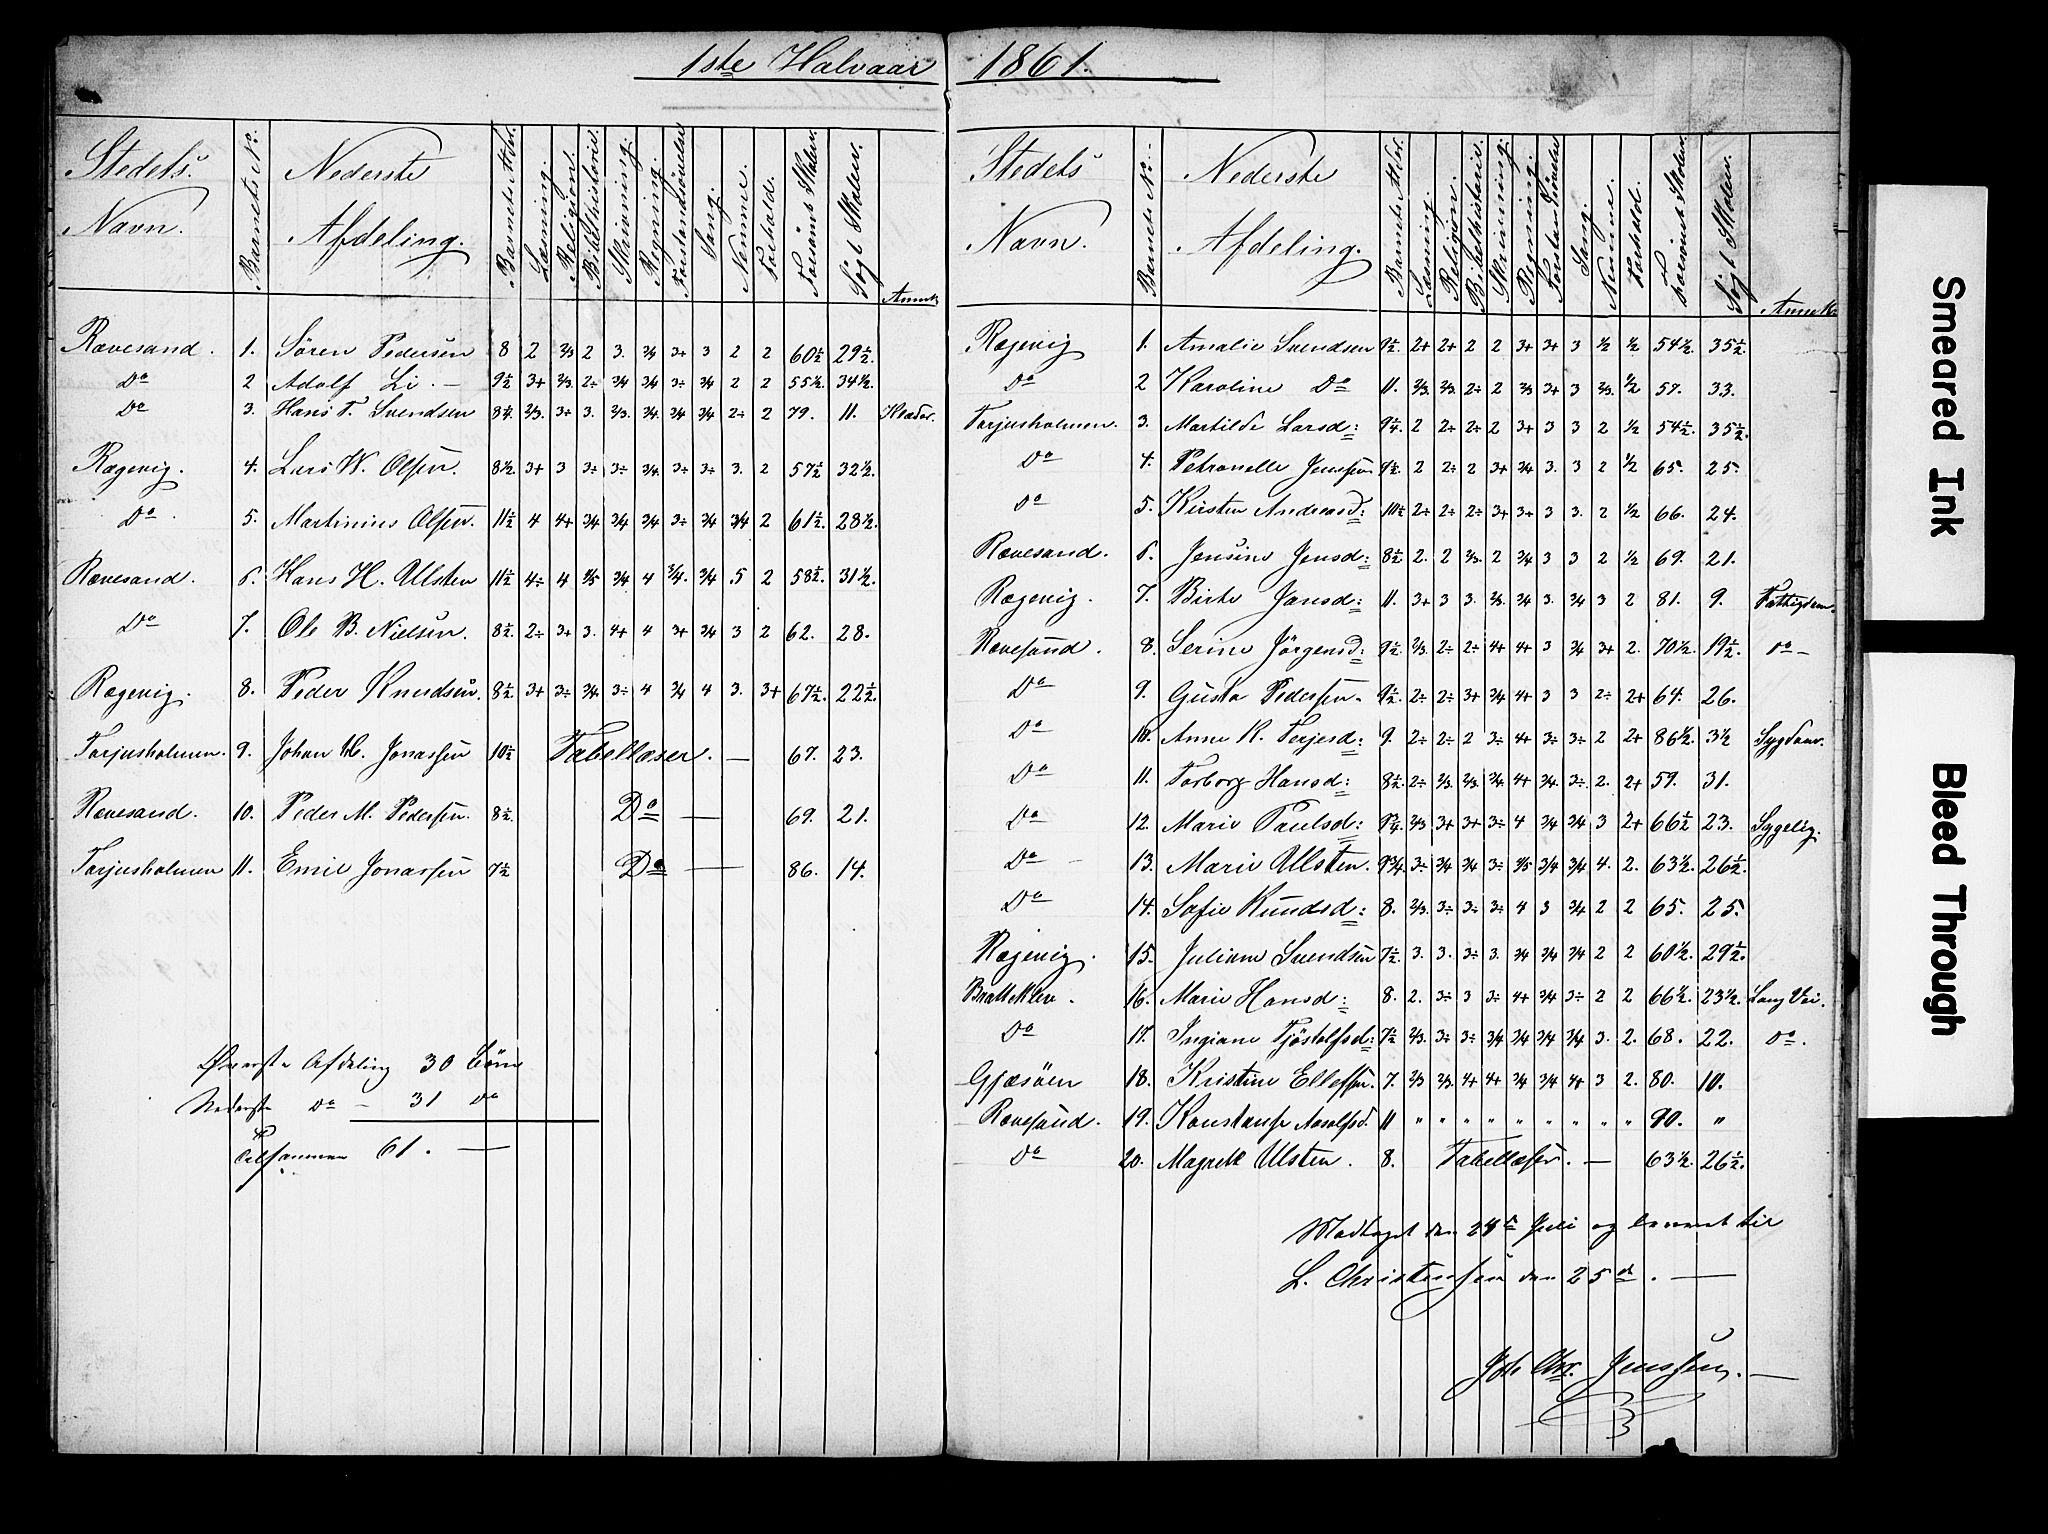 1ste Halvaar 1861.
Stedets Navn. | Barnets No. | Nederste Afdeling. | Barnets Alder. | Læsning. | Religion. | Bibelhistorie. | Skrivning. | Regning. | Forstandsövelse | Sang. | Nemme. | Forhold. | Forsömt Skolen. | Sögt Skolen. | Anmk.
Rævesand. 1. Sören Pedersen 8 2 2/3 2 3. 3/4 3+ 3 2 2 60½ 29½.
Do 2 Adolf Li. — 9½ 3+ 2/3. 2÷ 3/4 3/4 3÷ 3/4 2 2 55½. 34½.
Do 3. Hans T. Svendsen 8¼. 2/3. 3÷ 3. 2/3. 3/4. 3/4 3/4 2÷ 2 79. 11. Klæder.
Rægevig. 4. Lars W. Olsen. 8½ 3+ 3 3÷ 3÷ 3/4. 3÷ 3÷ 3. 2 57½ 32½.
Do. 5. Martinius Olsen. 11½ 4 4+ 3/4 3/4 3/4 3÷ 3/4 3/4 2 61½. 28½.
Rævesand. 6. Hans H. Ullsten 11½ 4÷ 4 4/5 3/4 4 3/4. 3/4 5 2 58½. 31½.
Do 7. Ole B. Nielsen. 8½. 2÷ 3+ 3. 4+ 4 3+ 3/4 3 2 62. 28.
Rægevig. 8. Peder Knudsen. 8½ 3+ 3÷ 3/4. 3÷ 4 3/4 4 3. 3+ 67½. 22½.
Torjusholmen. 9. Johan Jonassen 10½ Tabellæser. — 67. 23.
Rævesand. 10. Peder M. Pedersen. 8½. Do — 69. 21.
Torjusholmen 11. Emil Jonassen 7½ Do — 86. 14.
Överste Afdeling 30 Börn
Nederste do — 31 do
Tilsammen 61. —
Stedets Navn. | Barnets No. | Nederste Afdeling. | Barnets Alder. | Læsning. | Religion. | Bibelhistorie. | Skrivning. | Regning. | Forstandsövelse | Sang. | Nemme. | Forhold. | Forsömt Skolen. | Sögt Skolen. | Anmk.
Rægevig 1. Amalie Svendsen 9½. 2+ 2+ 2 2 3+ 3+ 3 ½ ½ 54½. 35½.
Do 2 Karoline Do 11. 2/3. 2/3. 2÷ 2 2/3 3+ 3 2/3. ½ 57. 33.
Torjusholmen. 3. Martilde Larsd: 9¼. 2 2÷ 2+ 2 3+ 3 3 2 ½ 54½. 35½.
Do 4. Petronelle Jenssen 9½. 2 2÷ 2 3+ 3/4 3. 3 2 ½ 65. 25.
Do 5. Kirsten Andreasd: 10½ 2÷ 2÷ 2÷ 3+ 3+ 3 3. 2 ½ 66. 24.
Rævesand. 6. Jensine Jensd: 8½ 2. 2 2/3. 2 3/4 3 3 2 ½ 69. 21.
Rægevig. 7. Birte Jansd: 11. 3+ 3 3. 2/3. 3/4 3. 3/4 3 2 81. 9. Fattigdom.
Rævesand. 8. Serine Jörgensd: 9½. 2/3. 2÷ 2÷ 4+ 4+ 3 3/4 3+ 2. 70½. 19½. do —
Do 9. Gusta Pedersen. 9½. 2÷ 2÷ 3+ 3/4 4+ 3 3 2÷ 2+ 64. 26.
Do 10. Anne K. Terjesd: 9. 2÷ 2÷ 2 3÷ 4+ 3÷ 3÷ 2 2+ 86½. 3½ Sygdom.
Do 11. Torborg Hansd: 8½. 2÷ 2/3. 2/3. 3/4 4+ 3/4. 3÷ 2. 2+ 59. 31.
Do 12. Marie Paulsd: 9¾. 2/3 3+ 3+ 3÷ 4 3/4 3/4 3 2+ 66½ 23. Sygelig.
Do — 13. Marie Ullsten. 9¾. 3÷ 3/4 3/4 3÷ 4/5 3/4 3/4 4. 2. 63½. 26½.
Do 14. Sofie Knudsd: 8. 2/3. 3÷ 3÷ 3÷ 4 3 3/4 2 2 65. 25.
Rægevig. 15. Juliane Svendsen 7½. 3. 3. 3÷ 3. 3/4 3/4 3/4 2 2 60½. 29½.
Bratteklev. 16. Marie Hansd: 8. 2. 3÷ 3 3÷ 4+ 3/4 3÷ 2 2 66½. 23½. Lang Vei.
Do 17. Ingiane Tjöstolfsd: 7½ 2/3. 3÷ 3÷ 3/4 3/4 3/4 3/4 3. 2. 68. 22. do.
Gjæsöen 18. Kristine Ellefsen. 7. 2/3 2/3. 4+ 4+ 3/4 3/4 4+ 3 2. 80. 10.
Rævesand. 19. Konstanse Aasolfsd. 11 " " " " " " " " " 90. "
Do 20. Magrete Ulsten. 8. Tabellæser. — 63½. 26½.
Modtaget den 24de Juli og leveret til
L. Christensen den 25de. —
Joh Chr. Jenssen. —
Smeared Ink
Bleed Through